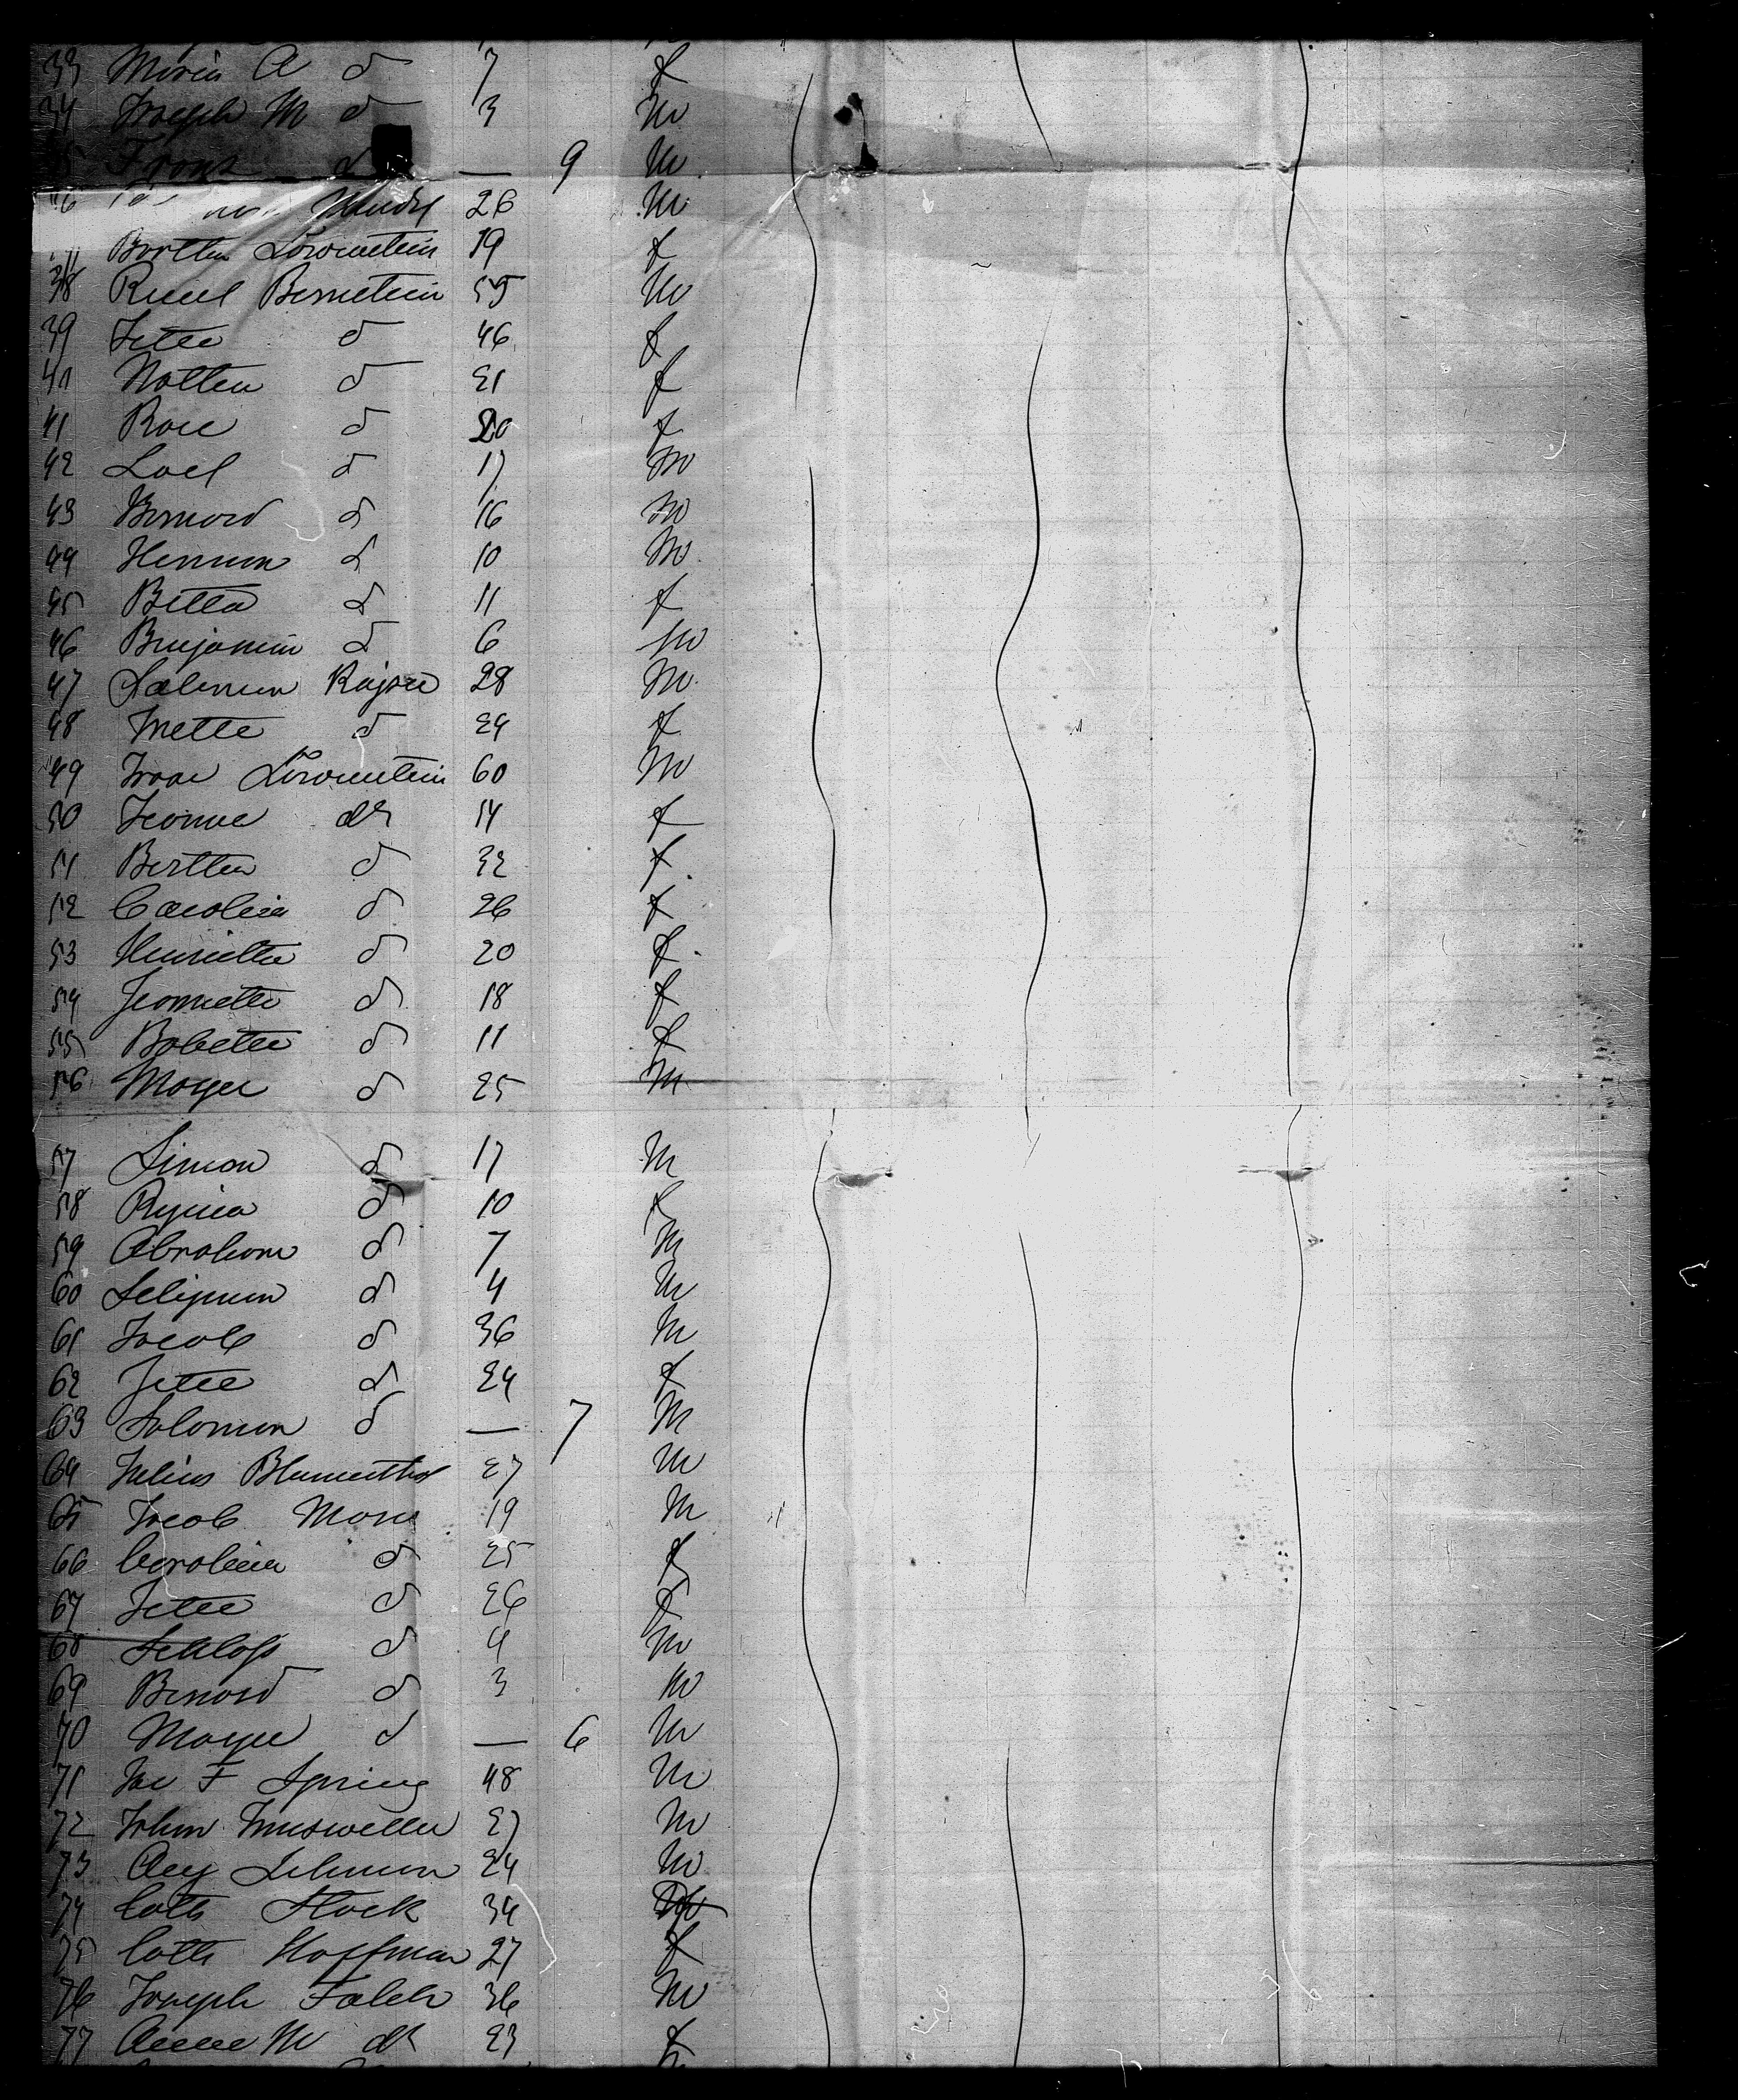 33 Maria A d 7 f
34 Joseph M d 3 M
35 Franz d — 9 M
36 Mendel 26 M
Bertha Löwenstein 19 f
38 Bernstein 55 M
39 Jette d 46 f
40 d 21 f
41 Rosе d 20 f
42 Loel d 17 M
43 Bernard d 16 M
44 Herman d 10 M
45 Betta d 11 f
46 Benjamin d 6 M
47 Salomon 28 M
48 d 24 f
49 Isaac Löwenstein 60 M
50 Jeanne do 54 f
51 Bertha d 32 f
52 Carolina d 26 f
53 Henrietta d 20 f
54 Jeannette d 18 f
55 Babette d 11 f
56 Mayer d 25 M
57 Simon d 17 M
58 Regina d 10 f
59 Abraham d 7 M
60 Seligman d 4 M
61 Jacob d 36 M
62 Jette d 24 f
63 Solomon d — 7 M
64 Julius Blumenthal 27 M
65 Jacob 19 M
66 Carolina d 25 f
67 Jette d 26 f
68 Schloss d 4 M
69 Bernard d 3 M
70 Mayer d — 6 M
71 F Spring 48 M
72 John 27 M
73 Aug Lehman 24 M
74 Cath Stock 34
75 Cath Hoffman 27 f
76 Joseph Falch 36 M
77 Anna M do 23 f